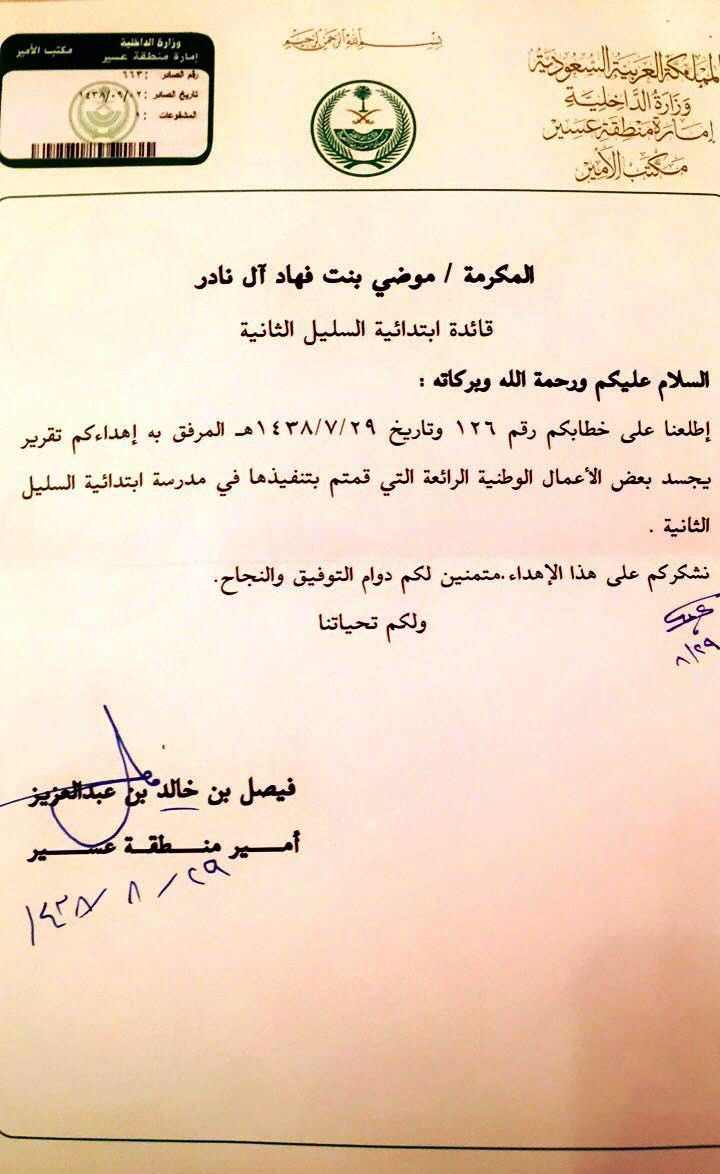 بسم الله الرحمن الرحيم
المملكة العربية السعودية
وزارة الداخلية
إمارة منطقة عسير
مكتب الأمير
وزارة الداخلية
إمارة منطقة عسير
مكتب الأمير
رقم الصادر : ٦٦٣
تاريخ الصادر : ١٤٣٨/٠٩/٠٢
المشفوعات : ١
المكرمة / موضي بنت فهاد آل نادر
قائدة ابتدائية السليل الثانية
السلام عليكم ورحمة الله وبركاته :
إطلعنا على خطابكم رقم ١٢٦ وتاريخ ١٤٣٨/٧/٢٩هـ المرفق به إهداءكم تقرير
يجسد بعض الأعمال الوطنية الرائعة التي قمتم بتنفيذها في مدرسة ابتدائية السليل
الثانية .
نشكركم على هذا الإهداء.متمنين لكم دوام التوفيق والنجاح.
ولكم تحياتنا
٨/٢٩
فيصل بن خالد بن عبدالعزيز
أمــــير منــــطقــة عســــــير
١٤٣٨/٨/٢٩